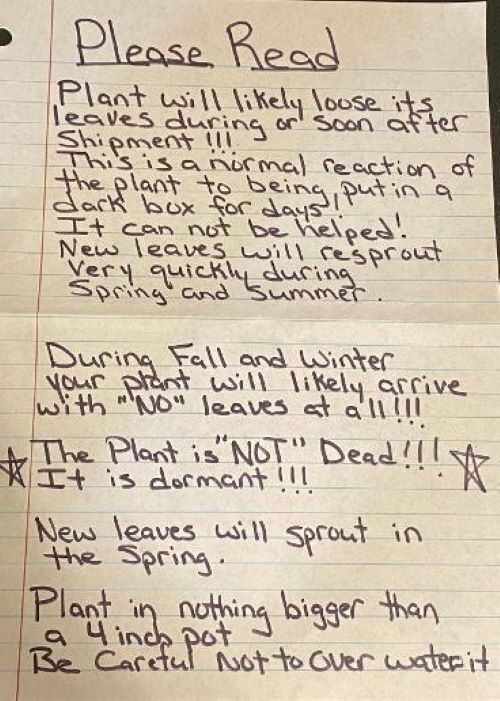 Please Read
Plant will likely loose its
leaves during or soon after
Shipment !!!
This is a normal reaction of
the plant to being put in a
dark box for days!
It can not be helped!
New leaves will resprout
very quickly during
Spring and Summer.
During Fall and Winter
your plant will likely arrive
with "NO" leaves at all!!!
The Plant is "NOT" Dead!!!
It is dormant!!!
New leaves will sprout in
the Spring.
Plant in nothing bigger than
a 4 inch pot
Be Careful Not to Over water it